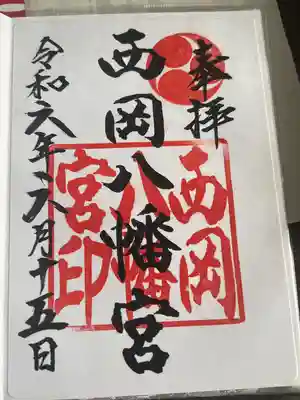 奉拝
西岡八幡宮
西岡
八幡
宮印
令和六年、六月十五日